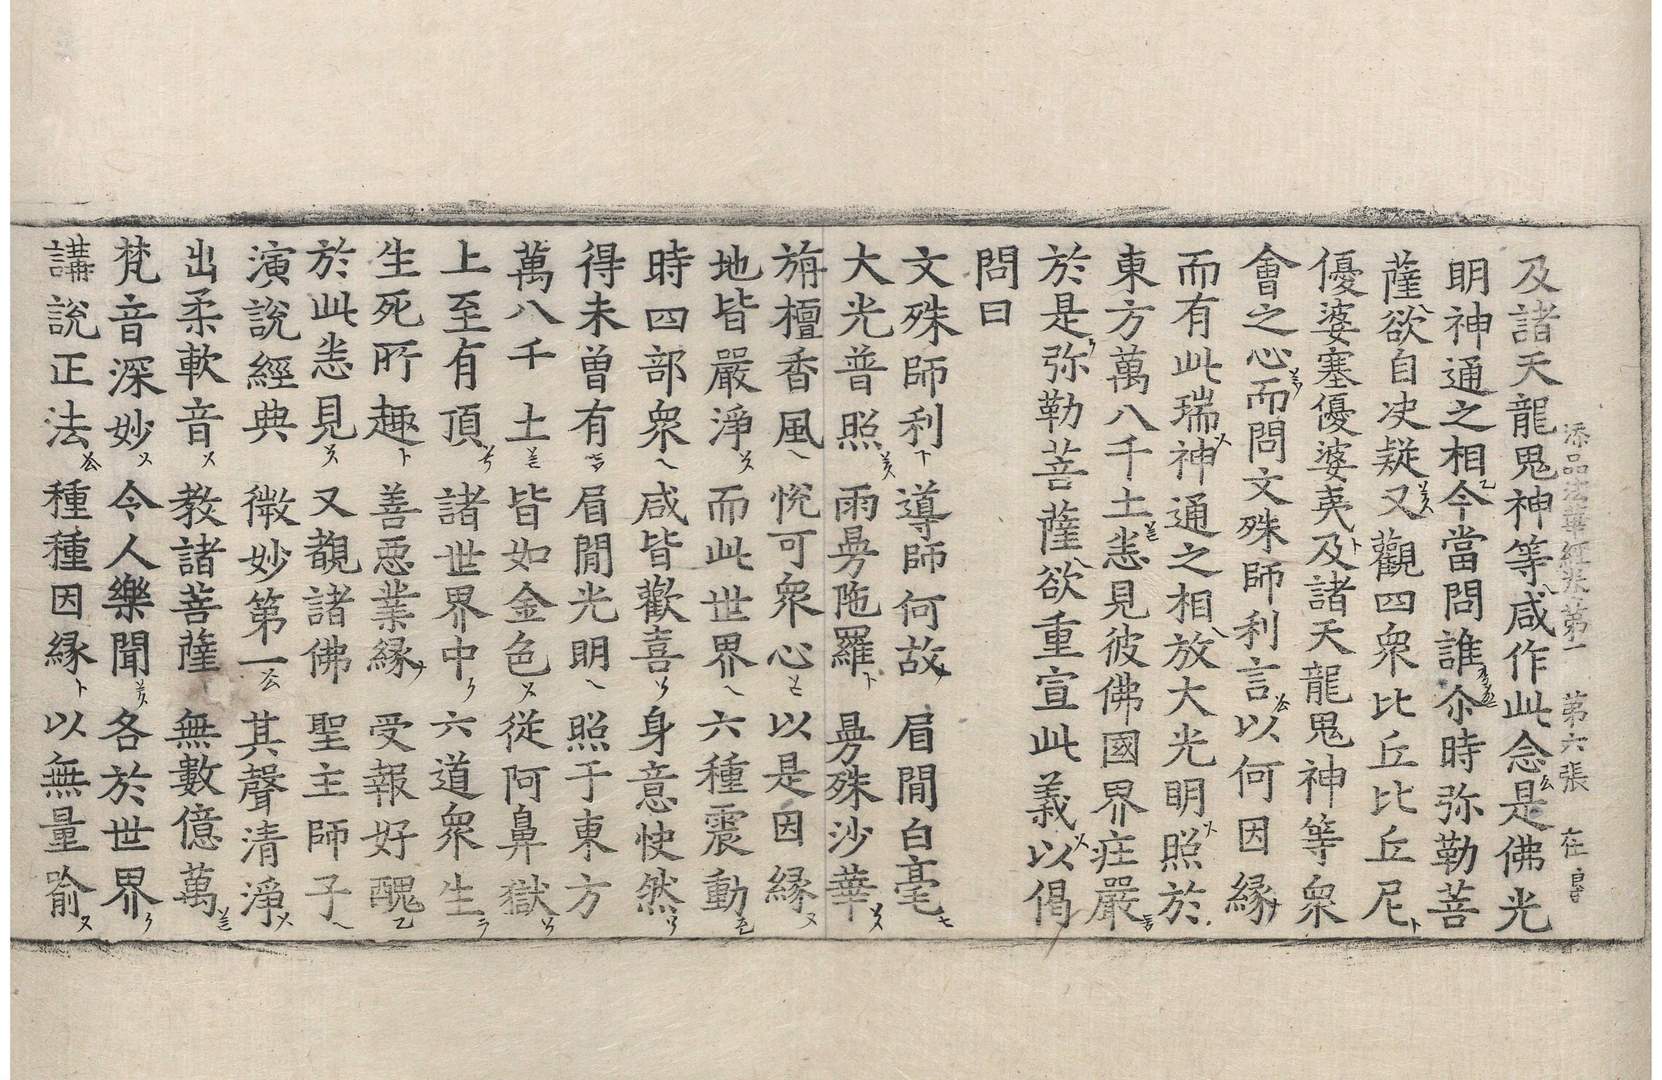 添品法華經卷第一　第六張　在
及諸天龍鬼神等咸作此念是佛光
明神通之相今當問誰尒時弥勒菩
薩欲自决疑又觀四衆比丘比丘尼
優婆塞優婆夷及諸天龍鬼神等衆
會之心而問文殊師利言以何因緣
而有此瑞神通之相放大光明照於
東方萬八千土悉見彼佛國界莊嚴
於是弥勒菩薩欲重宣此義以偈
問曰
文殊師利　導師何故　眉間白毫
大光普照　雨曼陁羅　曼殊沙華
旃檀香風　悅可衆心　以是因緣
地皆嚴淨　而此世界　六種震動
時四部衆　咸皆歡喜　身意快然
得未曾有　眉間光明　照于東方
萬八千土　皆如金色　從阿鼻獄
上至有頂　諸世界中　六道衆生
生死所趣　善惡業緣　受報好醜
於此悉見　又覩諸佛　聖主師子
演說經典　微妙第一　其聲清淨
出柔軟音　教諸菩薩　無數億萬
梵音深妙　令人樂聞　各於世界
講說正法　種種因緣　以無量喻